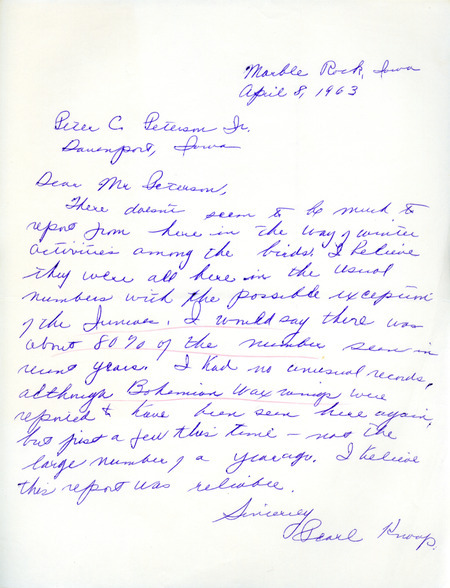 Marble Rock, Iowa
April 8, 1963
Peter C. Peterson Jr.
Davenport, Iowa
Dear Mr Peterson,
There doesn't seem to be much to
report from here in the way of winter
activities among the birds. I believe
they were all here in the usual
numbers with the possible exception
of the Juncoes. I would say there was
about 80% of the number seen in
recent years. I had no unusual records,
although Bohemian Waxwings were
reported to have been seen here again,
but just a few this time - not the
large number of a year ago. I believe
this report was reliable.
Sincerely
Pearl Knoop.